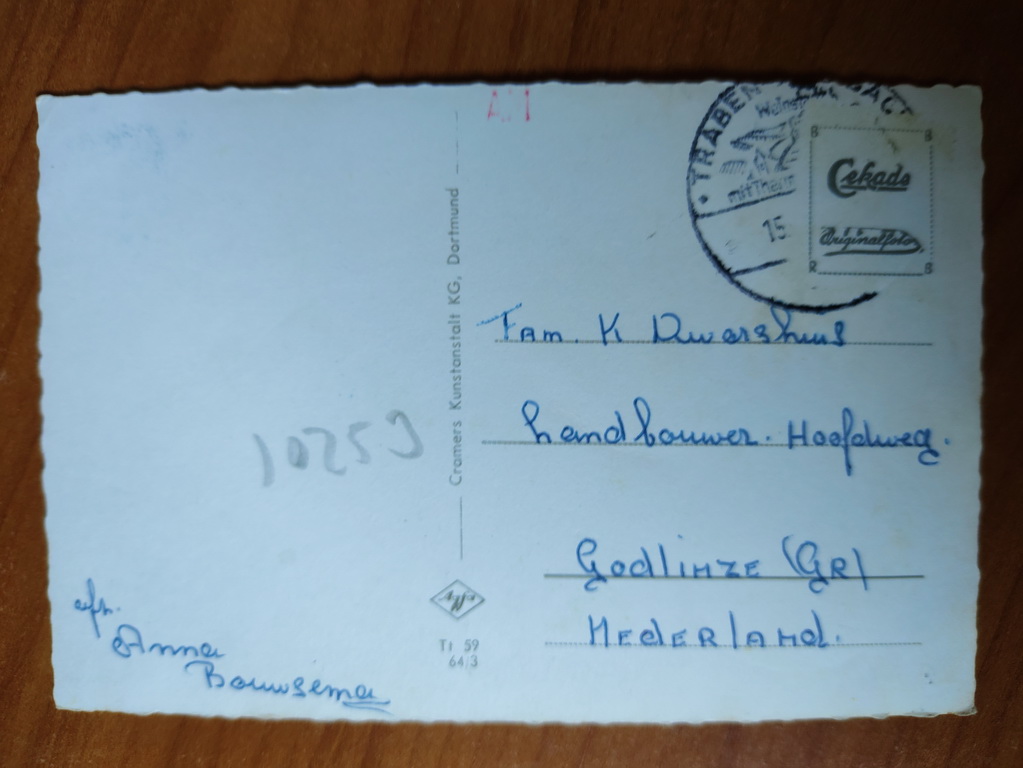 TRABEN
mit Therm
15
Cekade
Originalfoto
Cramers Kunstanstalt KG, Dortmund
Fam. K Dwarshuis
Landbouwer. Hoofdweg.
Godlinze (GR)
Nederland.
10259
afz.
Anna
Bouwsema
Tr 59
64/3